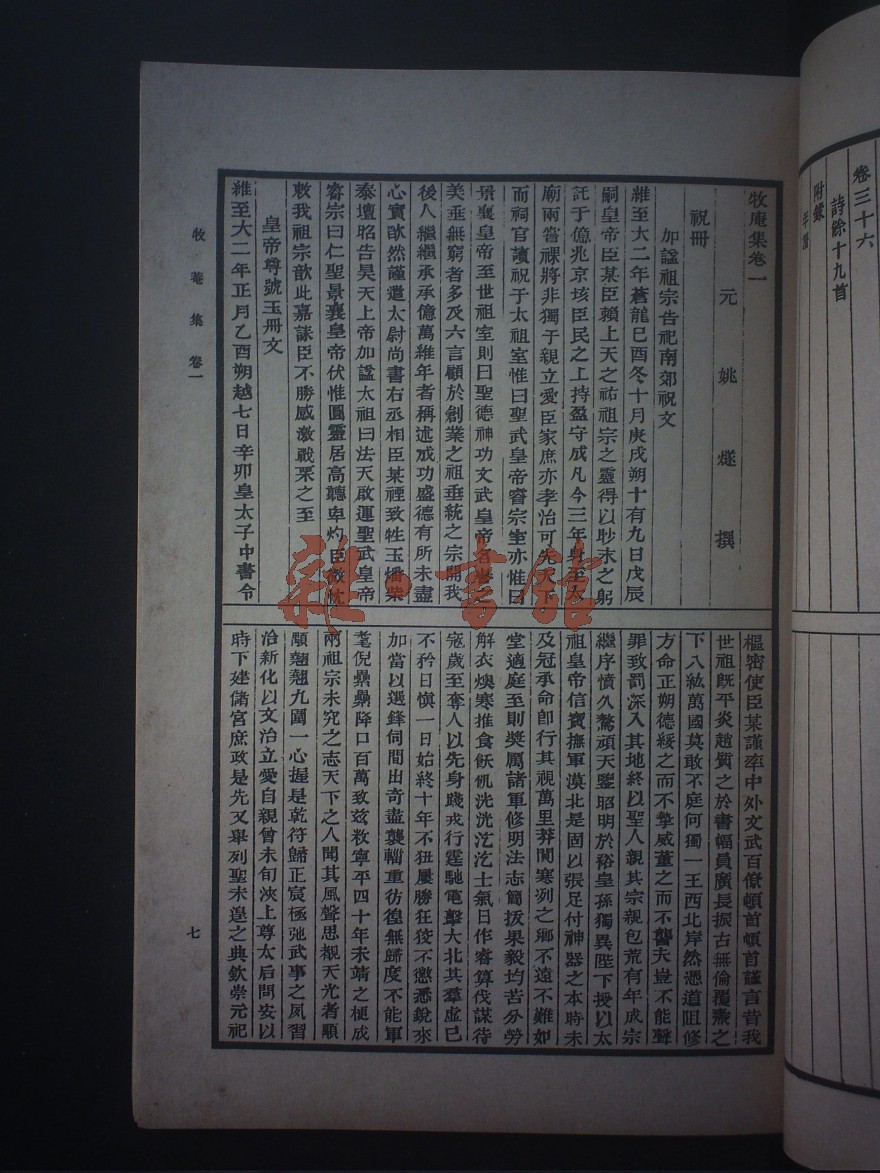 卷三十六
詩餘十九首
附錄
年譜
牧庵集卷一
元 姚燧 撰
祝冊
加諡祖宗告祀南郊祝文
維至大二年蒼龍巳酉冬十月庚戌朔十有九日戊辰
嗣皇帝臣某臣賴上天之祐祖宗之靈得以眇末之躬
託于億兆京垓臣民之上持盈守成凡今三年身至太
廟兩嘗祼將非獨于親立愛臣家庶亦孝治可先天下
而祠官讀祝于太祖室惟曰聖武皇帝睿宗室亦惟曰
景襄皇帝至世祖室則曰聖德神功文武皇帝名
美垂無窮者多及六言顧於創業之祖垂統之宗開我
後人繼繼承承億萬維年者稱述成功盛德有所未盡
心實歉然謹遣太尉尚書右丞相臣某禋致牲玉燔柴
泰壇昭告昊天上帝加諡太祖曰法天啟運聖武皇帝
睿宗曰仁聖景襄皇帝伏惟圜靈居高聽卑灼臣微忱
敕我祖宗歆此嘉謀臣不勝感激戰栗之至
皇帝尊號玉冊文
維至大二年正月乙酉朔越七日辛卯皇太子中書令
樞密使臣某謹率中外文武百僚頓首頓首謹言昔我
世祖旣平炎趙質之於書幅員廣長振古無倫覆燾之
下八紘萬國莫敢不庭何獨一王西北岸然憑道阻修
方命正朔德綏之而不摯威董之而不讋夫豈不能聲
罪致罰深入其地終以聖人親其宗親包荒有年成宗
繼序憤久驁頑天鑒昭明於裕皇孫獨異陛下授以太
祖皇帝信寶撫軍漠北是固以張足付神器之本時未
及冠承命卽行其視萬里莽閒寒冽之鄉不遠不難如
堂適庭至則獎厲諸軍修明法志簡拔果毅均苦分勞
解衣燠寒推食飫飢洸洸汔汔士氣日作審算伐謀待
寇歲至奪人以先身踐戎行霆馳電擊大北其羣虛巳
不矜日愼一日始終十年不狃屢勝狂狡不懲悉銳來
加當以選鋒伺間出奇盡襲輜重彷徨無歸度不能軍
耄倪纍纍降口百萬致茲敉寧平四十年未靖之梗成
兩祖宗未究之志天下之人聞其風聲思覩天光者顒
顒翹翹九圍一心握是乾符歸正宸極弛武事之夙習
治新化以文治立愛自親曾未旬浹上尊太后問安以
時下建儲宮庶政是先又舉列聖未遑之典欽崇元祀
牧菴集 卷一
七
雜·書館